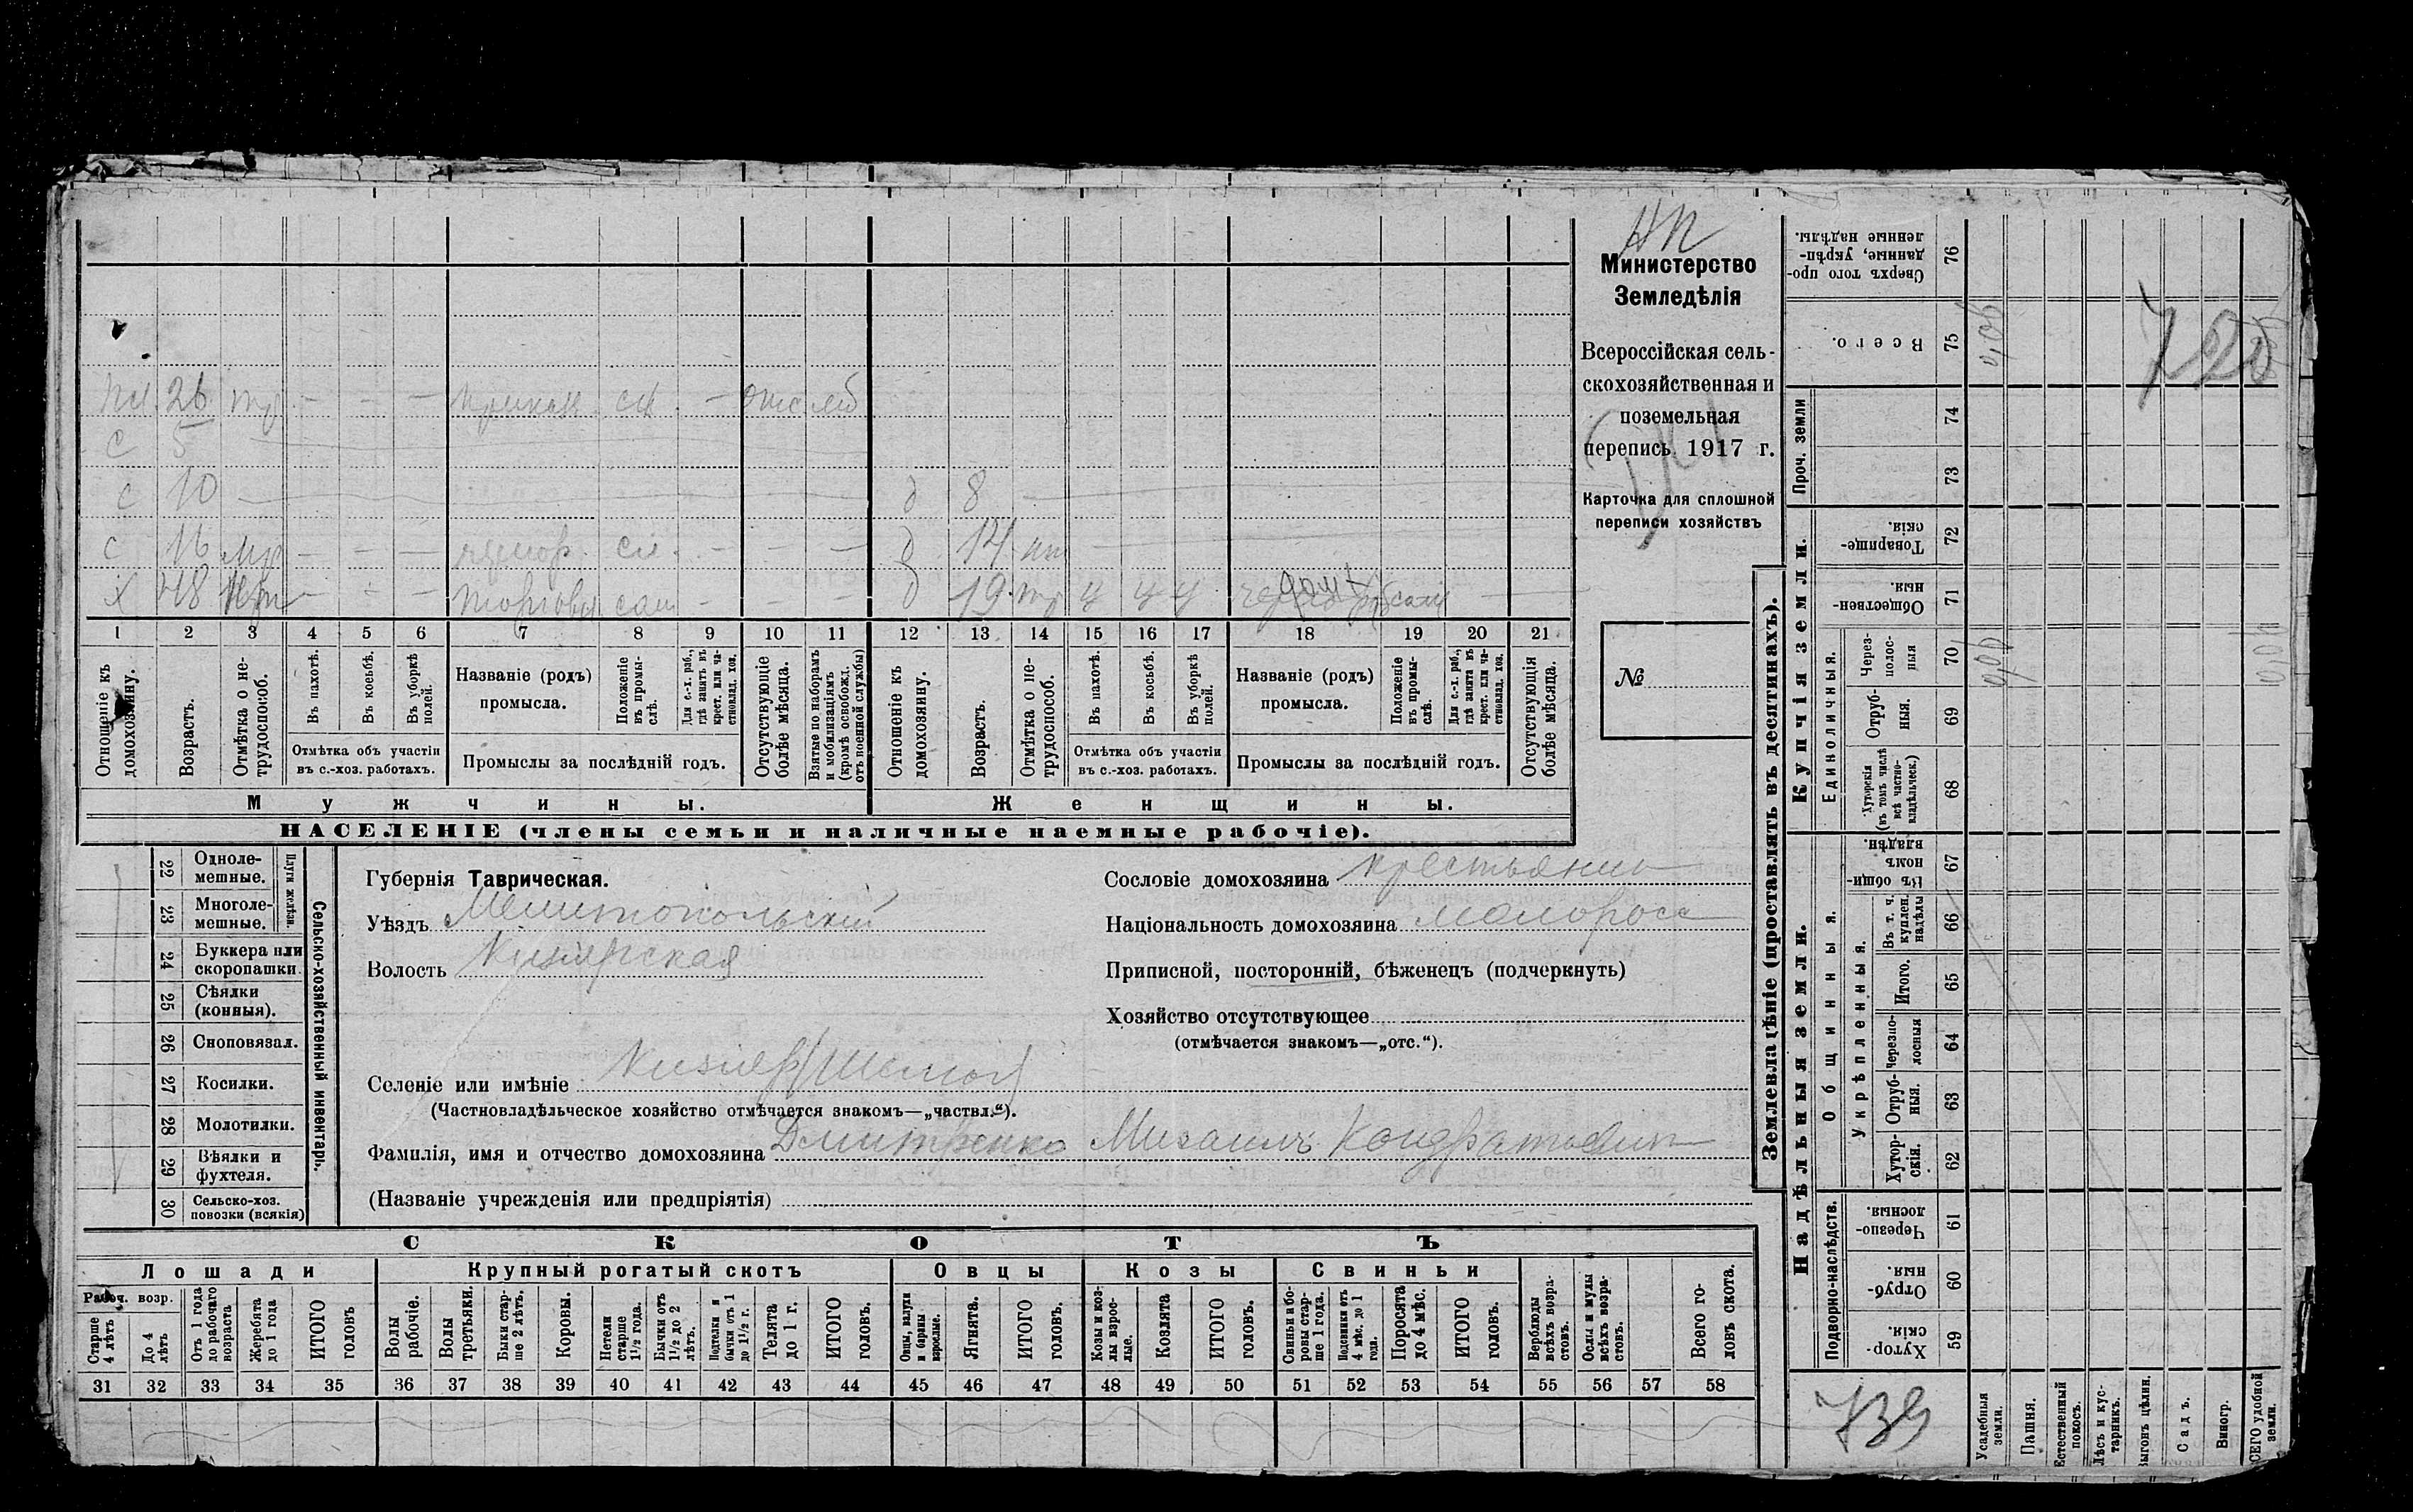 Министерство
Земледѣлія
Всероссійская сель-
скохозяйственная и
поземельная
перепись 1917 г.
Карточка для сплошной
переписи хозяйствъ
№
пл 26 тр - - - приказ сл. - отс моб
с 5
с 10 д 8
с 16 - - - сл. - - - д 14
х 48 - - - торговл сам - - - д 19 тр ч ч ч
1 2 3 4 5 6 7 8 9 10 11 12 13 14 15 16 17 18 19 20 21
Отношеніе къ домохозяину.
Возрастъ.
Отмѣтка о не-трудоспособ.
Въ пахотѣ.
Въ косьбѣ.
Въ уборкѣ полей.
Отмѣтка объ участіи
въ с.-хоз. работахъ.
Названіе (родъ)
промысла.
Положеніе въ промы-слѣ.
Для с.-х. раб., гдѣ занятъ въ крест. или ча-стновлад. хоз.
Промыслы за послѣдній годъ.
Отсутствующіе болѣе мѣсяца.
Взятые по наборамъ и мобилизаціямъ (кромѣ освобожд. отъ военной службы)
Отношеніе къ домохозяину.
Возрастъ.
Отмѣтка о не-трудоспособ.
Въ пахотѣ.
Въ косьбѣ.
Въ уборкѣ полей.
Отмѣтка объ участіи
въ с.-хоз. работахъ.
Названіе (родъ)
промысла.
Положеніе въ промы-слѣ.
Для с.-х. раб., гдѣ занята въ крест. или ча-стновлад. хоз.
Промыслы за послѣдній годъ.
Отсутствующія болѣе мѣсяца.
Мужчины.
Женщины.
НАСЕЛЕНІЕ (члены семьи и наличные наемные рабочіе).
22 Одноле-мешные.
23 Многоле-мешные.
Плуги желѣзн.
24 Буккера или скоропашки
25 Сѣялки (конныя).
26 Сноповязал.
27 Косилки.
28 Молотилки.
29 Вѣялки и фухтеля.
30 Сельско-хоз. повозки (всякія)
Сельско-хозяйственный инвентарь.
Губернія Таврическая.
Уѣздъ Мелитопольскій
Волость Кизіярская
Селеніе или имѣніе Кизіяр (Шелюг)
(Частновладѣльческое хозяйство отмѣчается знакомъ—„частвл.“).
Фамилія, имя и отчество домохозяина Дмитренко Михаилъ Кондратович
(Названіе учрежденія или предпріятія)
Сословіе домохозяина крестьянин
Національность домохозяина малоросс
Приписной, посторонній, бѣженецъ (подчеркнуть)
Хозяйство отсутствующее
(отмѣчается знакомъ—„отс.“).
СКОТЪ
Лошади
Крупный рогатый скотъ
Овцы
Козы
Свиньи
Рабоч. возр.
Старше 4 лѣтъ
До 4 лѣтъ
Отъ 1 года до рабочаго возраста
Жеребята до 1 года
ИТОГО головъ
Волы рабочіе.
Волы третьяки.
Быки стар-ше 2 лѣтъ.
Коровы.
Нетели старше 1½ года.
Бычки отъ 1½ до 2 лѣтъ.
Подтелки и бычки отъ 1 до 1½ г.
Телята до 1 г.
ИТОГО головъ.
Овцы, валухи и бараны взрослые.
Ягнята.
ИТОГО головъ.
Козы и коз-лы взрос-лые.
Козлята
ИТОГО головъ.
Свиньи и бо-ровы стар-ше 1 года.
Подсвинки отъ 4 мѣс. до 1 года.
Поросята до 4 мѣс.
ИТОГО головъ.
Верблюды всѣхъ возра-стовъ.
Ослы и мулы всѣхъ возра-стовъ.
Всего го-ловъ скота.
31 32 33 34 35 36 37 38 39 40 41 42 43 44 45 46 47 48 49 50 51 52 53 54 55 56 57 58
Землевладѣніе (проставлять въ десятинахъ).
Купчія земли.
Надѣльныя земли.
Сверхъ того про-данные, укрѣп-ленные надѣлы. 76
Всего. 75
0,06
720
Проч. земли 74 73
Товарище-скія. 72
Обществен-ныя. 71
Единоличныя.
Через-полос-ныя 70
0,06
0,06
Отруб-ныя. 69
Хуторскія (въ томъ числѣ всѣ частно-владѣльческ.) 68
Общинныя.
Въ общи-номъ владѣн. 67
Укрѣпленныя.
Въ т. ч. куплен. надѣлы 66
Итого. 65
Черезпо-лосныя 64
Отруб-ныя. 63
Хутор-скія. 62
Подворно-наслѣдств.
Черезпо-лосныя. 61
Отруб-ныя. 60
Хутор-скія. 59
739
Усадебныя земли.
Пашня.
Естественный покосъ.
Лѣсъ и кус-тарникъ.
Выгонъ цѣлин.
Садъ.
Виногр.
ВСЕГО удобной земли.